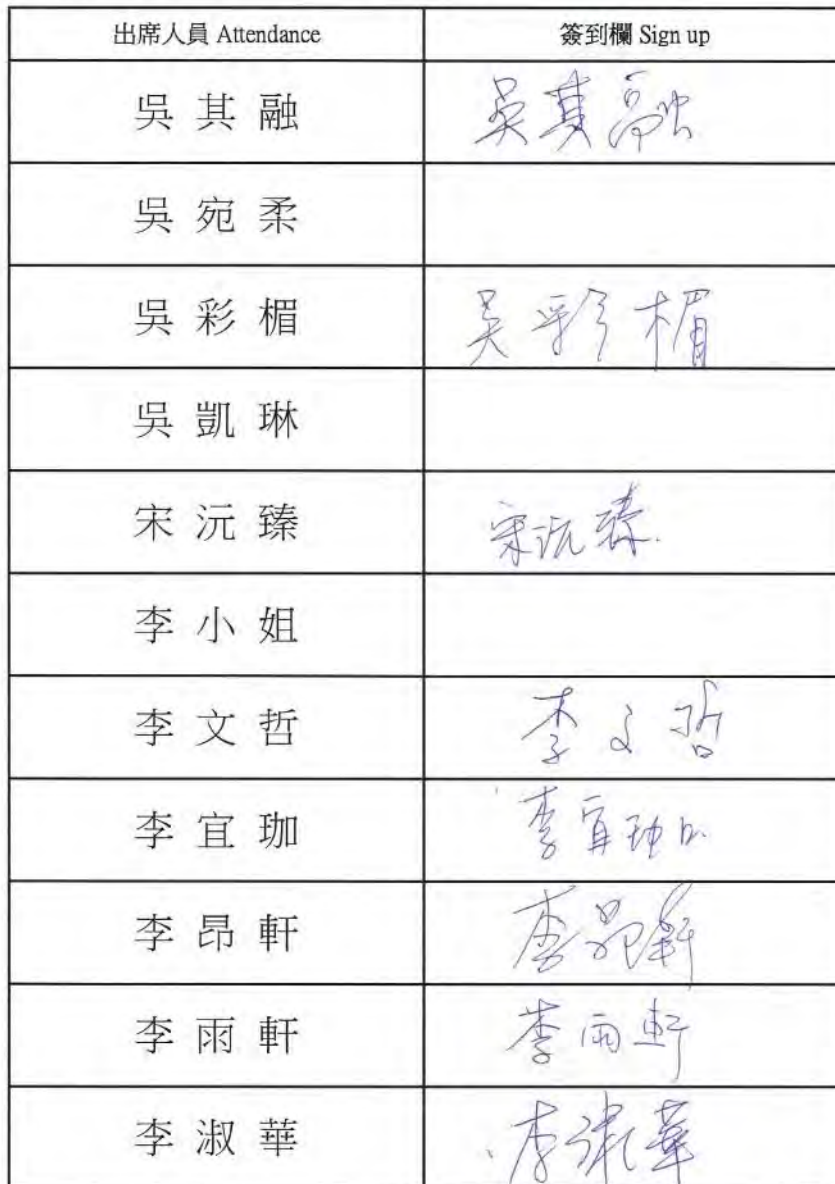 出席人員 Attendance 簽到欄 Sign up
吳其融 吳其融
吳宛柔
吳彩楣 吳彩楣
吳凱琳
宋沅臻 宋沅臻
李小姐
李文哲 李文哲
李宜珈 李宜珈
李昂軒 李昂軒
李雨軒 李雨軒
李淑華 李淑華